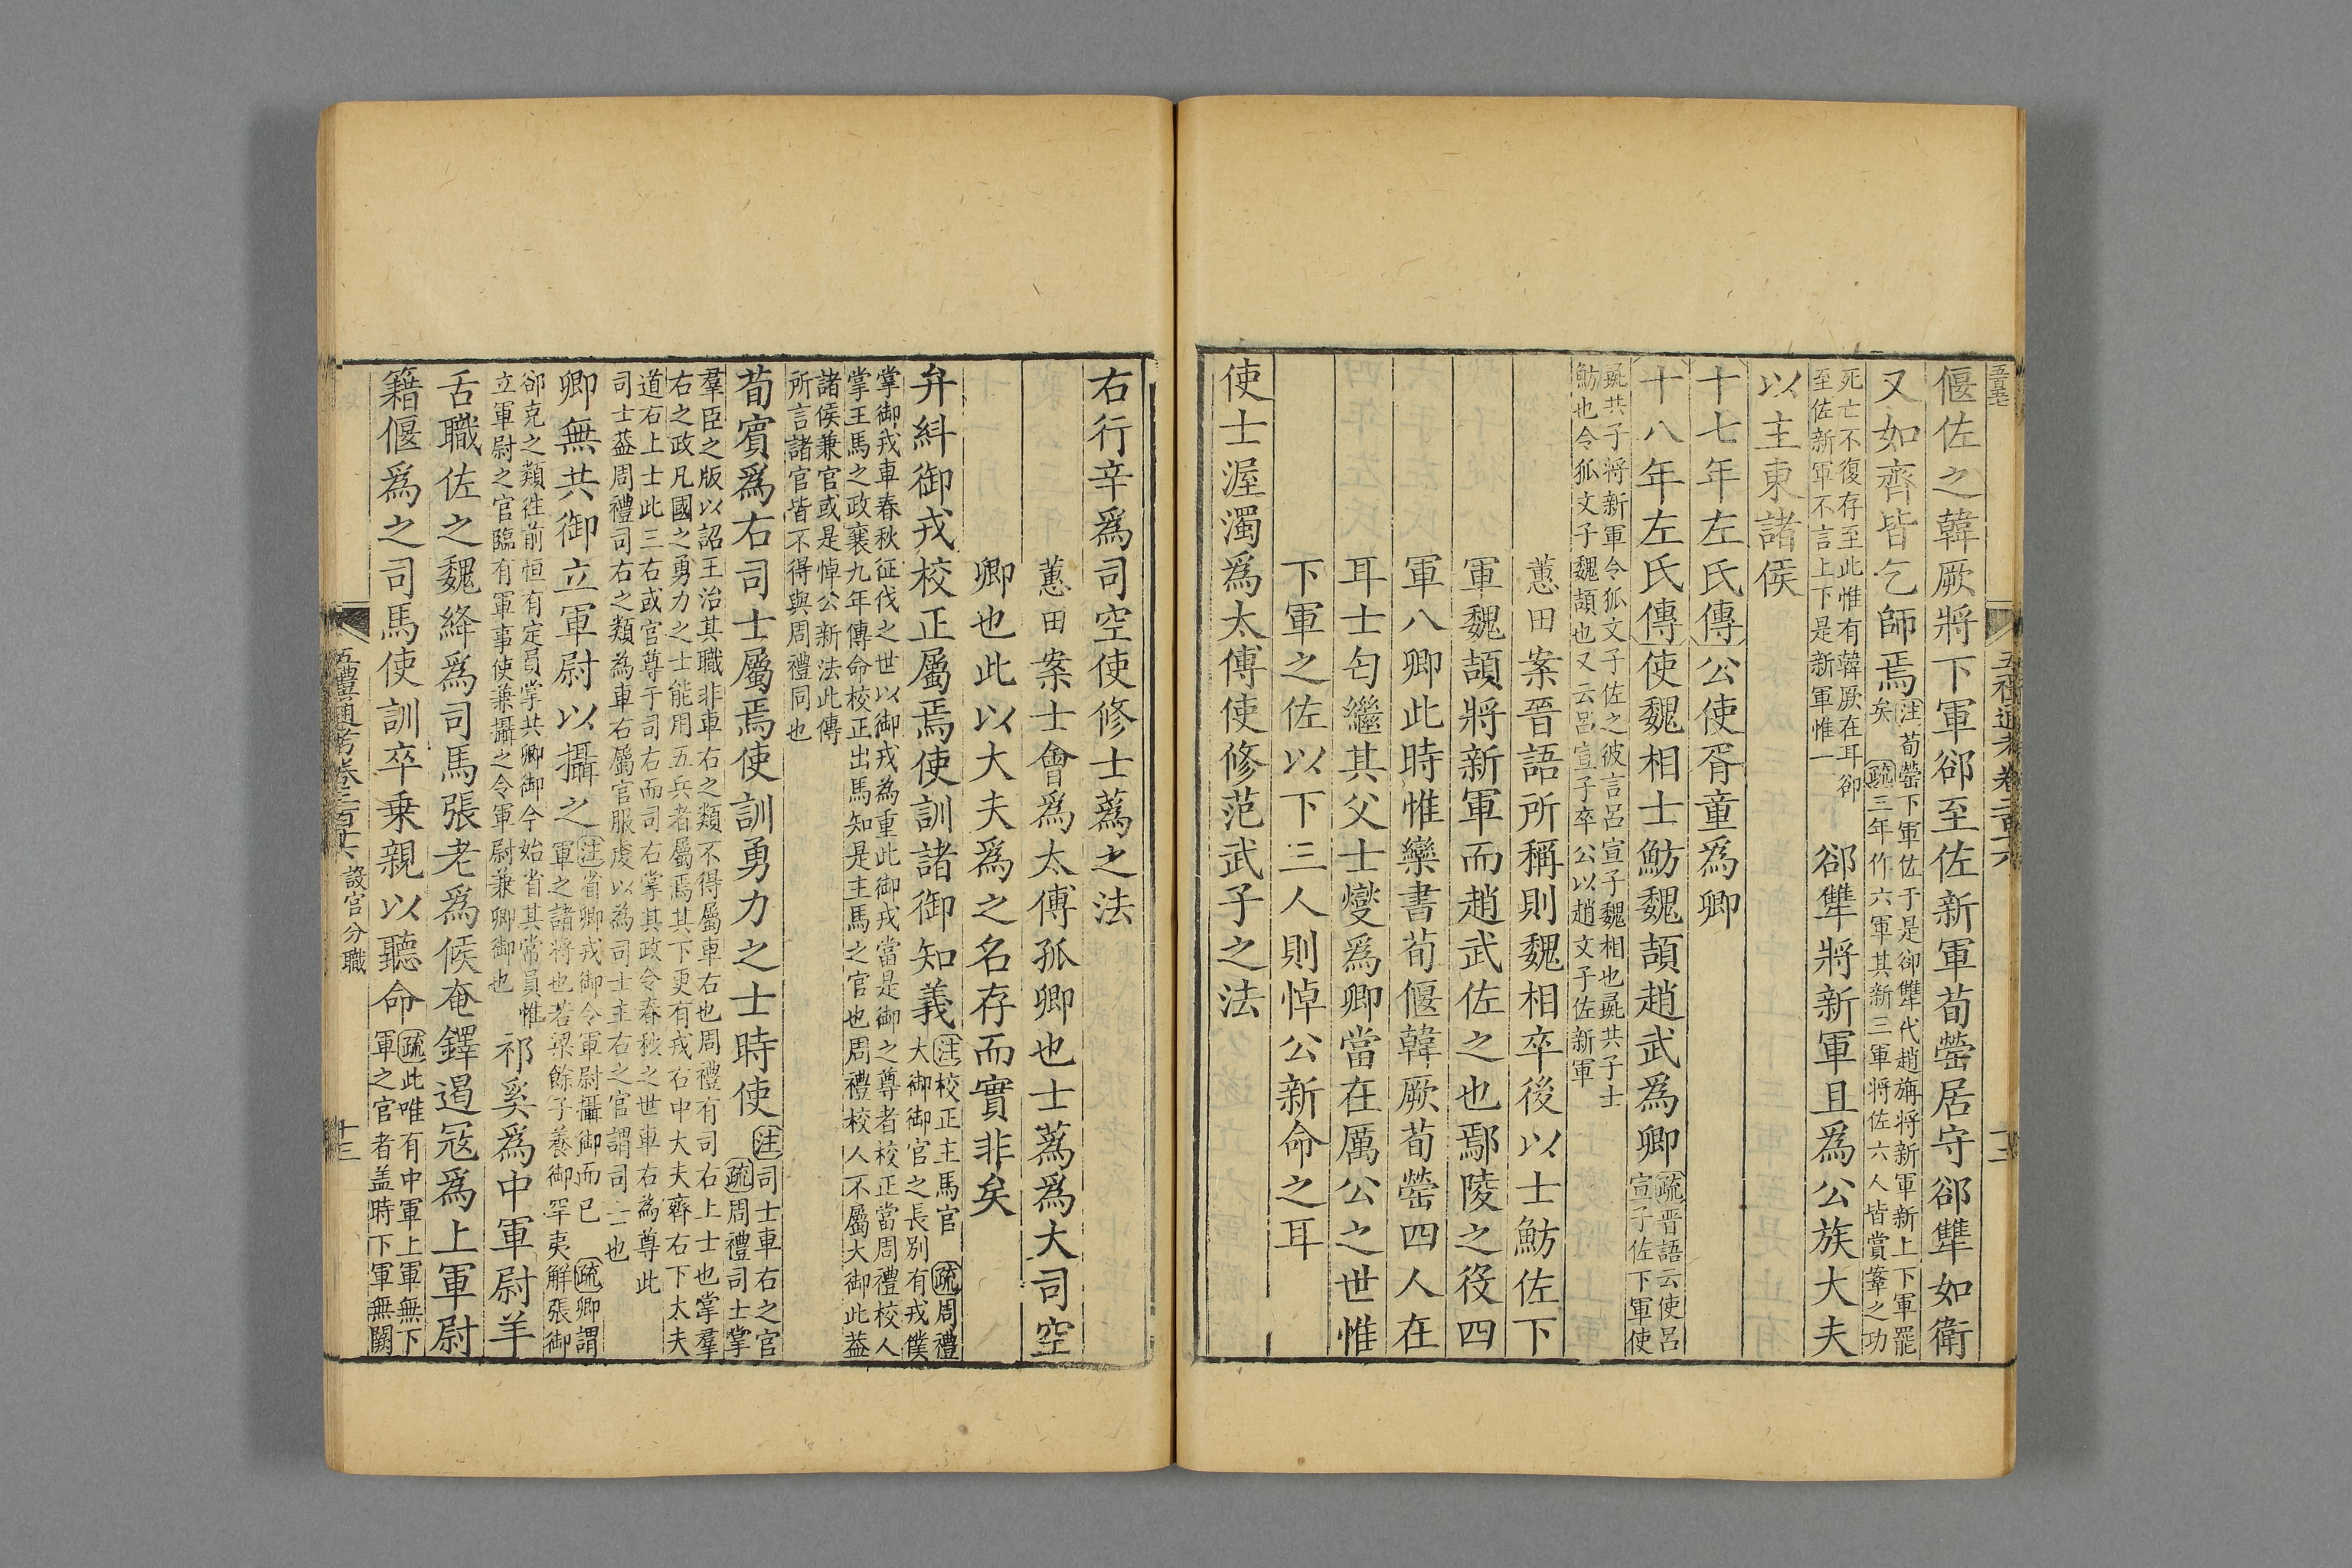 偃佐之韓厥將下軍郤至佐新軍荀罃居守郤犫如衛
又如齊皆乞師焉注荀罃下軍佐于是郤犫代趙旃將新軍新上下軍罷矣 疏三年作六軍其新三軍將佐六人皆賞鞌之功
死亡不復存至此惟有韓厥在耳郤至佐新軍不言上下是新軍惟一 郤犫將新軍且爲公族大夫
以主東諸侯
十七年左氏傳公使胥童爲卿
十八年左氏傳使魏相士魴魏頡趙武爲卿疏晋語云使呂宣子佐下軍使
彘共子將新軍令狐文子佐之彼言呂宣子魏相也彘共子士魴也令狐文子魏頡也又云呂宣子卒公以趙文子佐新軍
蕙田案晉語所稱則魏相卒後以士魴佐下
軍魏頡將新軍而趙武佐之也鄢陵之役四
軍八卿此時惟欒書荀偃韓厥荀罃四人在
耳士匄繼其父士燮爲卿當在厲公之世惟
下軍之佐以下三人則悼公新命之耳
使士渥濁爲太傅使修范武子之法
右行辛爲司空使修士蔿之法
蕙田案士會爲太傅孤卿也士蔿爲大司空
卿也此以大夫爲之名存而實非矣
弁糾御戎校正屬焉使訓諸御知義注校正主馬官 疏周禮大御御官之長別有戎僕
掌御戎車春秋征伐之世以御戎為重此御戎當是御之尊者校正當周禮校人掌王馬之政襄九年傳命校正出馬知是主馬之官也周禮校人不屬大御此葢
諸侯兼官或是悼公新法此傳所言諸官皆不得與周禮同也
荀賓爲右司士屬焉使訓勇力之士時使注司士車右之官疏周禮司士掌
羣臣之版以詔王治其職非車右之類不得屬車右也周禮有司右上士也掌羣右之政凡國之勇力之士能用五兵者屬焉其下更有戎右中大夫齊右下大夫
道右上士此三右或官尊于司右而司右掌其政令春秋之世車右為尊此司士葢周禮司右之類為車右屬官服虔以為司士主右之官謂司士也
卿無共御立軍尉以攝之注省卿戎御令軍尉攝御而已 疏卿謂軍之諸將也若梁餘子養御罕夷解張御
郤克之類往前恒有定員掌共卿御今始省其常員惟立軍尉之官臨有軍事使兼攝之令軍尉兼卿御也 祁奚爲中軍尉羊
舌職佐之魏絳爲司馬張老爲候奄鐸遏寇爲上軍尉
籍偃爲之司馬使訓卒乗親以聽命疏此唯有中軍上軍無下軍之官者盖時下軍無闕
五禮通考卷二百十六 設官分職 十三